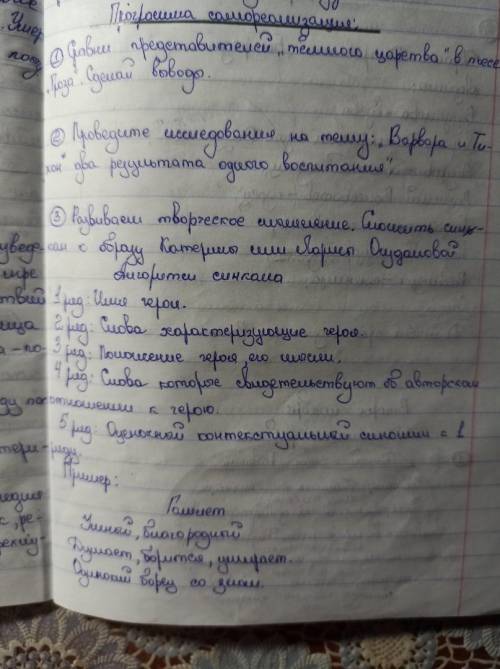 Программа самореализация:
① Сравни представителей „тёмного царства" в пьесе
„Гроза". Сделай выводы.
② Проведите исследования на тему: „Варвара и Ти-
хон" два результата одного воспитания".
③ Развиваем творческое мышление. Сложить синк-
вейн о образу Катерины или Ларисы Огудаловой
Алгоритм синквейна
1 ряд: Имя героя.
2 ряд: Слова характеризующие героя.
3 ряд:
4 ряд: Слова которое свидетельствуют об авторском
отношении к герою.
5 ряд: Оценочной контекстуальной синоним с 1
ряду.
Пример:
Гамлет
Умной, благородной
Думает, борится, умирает.
Одинокий борец со злом.